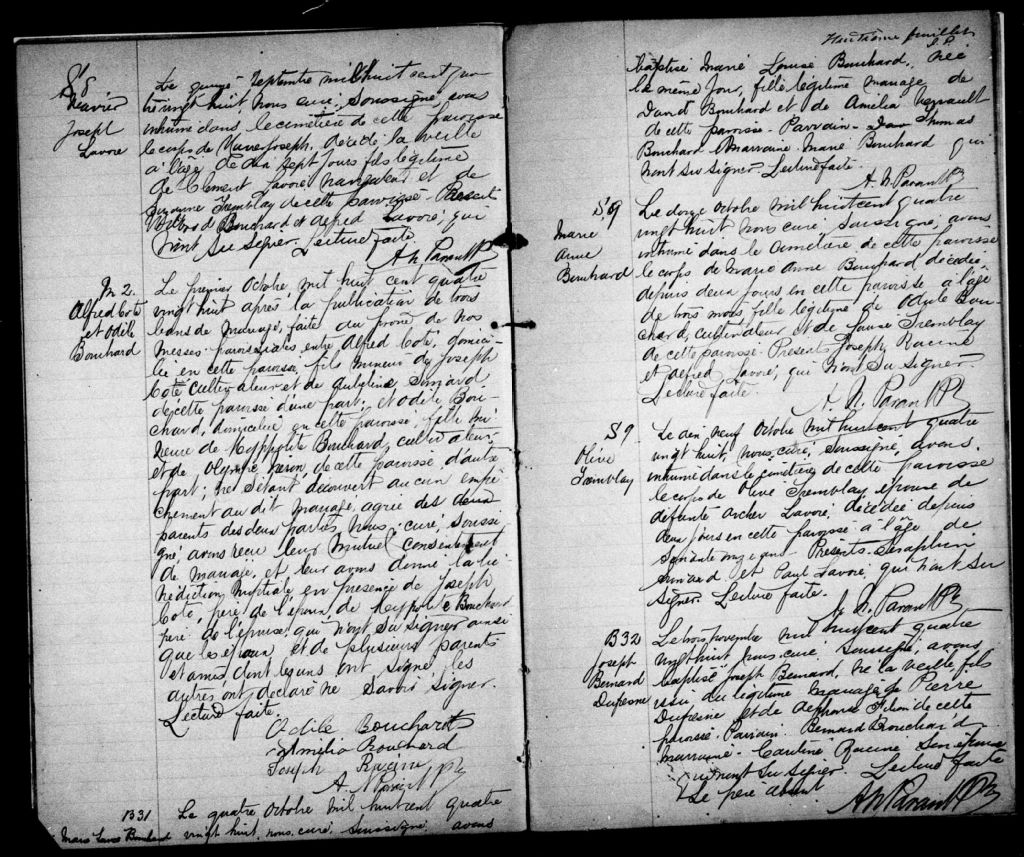 S 8
Xavier
Joseph
Lavoie
Le quinze Septembre mil huit cent qua
tre vingt huit, nous curé, soussigné, avons
inhumé dans le cimetière de cette paroisse
le corps de Joseph, décédé la veille
à l'âge de dix sept jours fils légitime
de Clément Lavoie navigateur et de
Suzanne Tremblay de cette paroisse. Présent
Bouchard et Alfred Lavoie, qui
n'ont su signer. Lecture faite.
A. N. Parant Ptre
M 2.
Alfred Coté
et Odile
Bouchard
Le premier Octobre mil huit cent quatre
vingt huit après la publication de trois
bans de mariage, faite au prone de nos
messes paroissiales entre Alfred Coté, domici-
lié en cette paroisse, fils mineur de Joseph
Coté cultivateur et de Simard
de cette paroisse d'une part; et Odile Bou-
chard, domiciliée en cette paroisse, fille mi-
neure de Hyppolite Bouchard, cultivateur,
et de Olympe de cette paroisse d'autre
part; ne s'étant découvert aucun empê-
chement au dit mariage, agrée des deux
parents des deux parties, nous, curé, soussi-
gné avons reçu leur mutuel consentement
de mariage, et leur avons donné la bé-
nédiction nuptiale en présence de Joseph
Coté, père de l'époux, de Hyppolite Bouchard
père de l'épouse, qui n'ont su signer ainsi
que les époux et de plusieurs parents
et amis dont les uns ont signé, les
autres ont déclaré ne savoir signer.
Lecture faite.
Odile Bouchard
Amélia Bouchard
Joseph Racine
A. N. Parant Ptre
B31
Marie Louise Bouchard
Le quatre Octobre mil huit cent quatre
vingt huit, nous, curé, soussigné avons
Huitième feuillet
baptisé Marie Louise Bouchard, née
le même jour, fille légitime mariage de
David Bouchard et de Amélia Perrault
de cette paroisse. Parrain Thomas
Bouchard. Marraine Marie Bouchard qui
n'ont su signer. Lecture faite.
A. N. Parant Ptre
S 9
Marie
Anne
Bouchard
Le douze Octobre mil huit cent quatre
vingt huit nous curé, soussigné, avons
inhumé dans le cimetière de cette paroisse
le corps de Marie Anne Bouchard décédée
depuis deux jours en cette paroisse à l'âge
de trois mois, fille légitime de Odule Bou-
chard, cultivateur et de Louise Tremblay
de cette paroisse. Présents Joseph Racine
et Alfred Lavoie, qui n'ont su signer.
Lecture faite.
A. N. Parant Ptre
S 9
Olive
Tremblay
Le dix neuf Octobre mil huit cent quatre
vingt huit, nous, curé, soussigné, avons
inhumé dans le cimetière de cette paroisse
le corps de Olive Tremblay épouse de
défunt Archer Lavoie, décédée depuis
deux jours en cette paroisse à l'âge de
soixante onze ans. Présents Séraphin
Simard et Paul Lavoie, qui n'ont su
signer. Lecture faite.
A. N. Parant Ptre
B32
Joseph
Bernard
Dufresne
Le trois novembre mil huit cent quatre
vingt huit nous curé soussigné, avons
baptisé Joseph Bernard, né la veille fils
issu du légitime mariage de Pierre
Dufresne et de Filion de cette
paroisse. Parrain Bernard Bouchard
Marraine Racine son épouse
qui n'ont su signer. Lecture faite
Le père absent
A. N. Parant Ptre